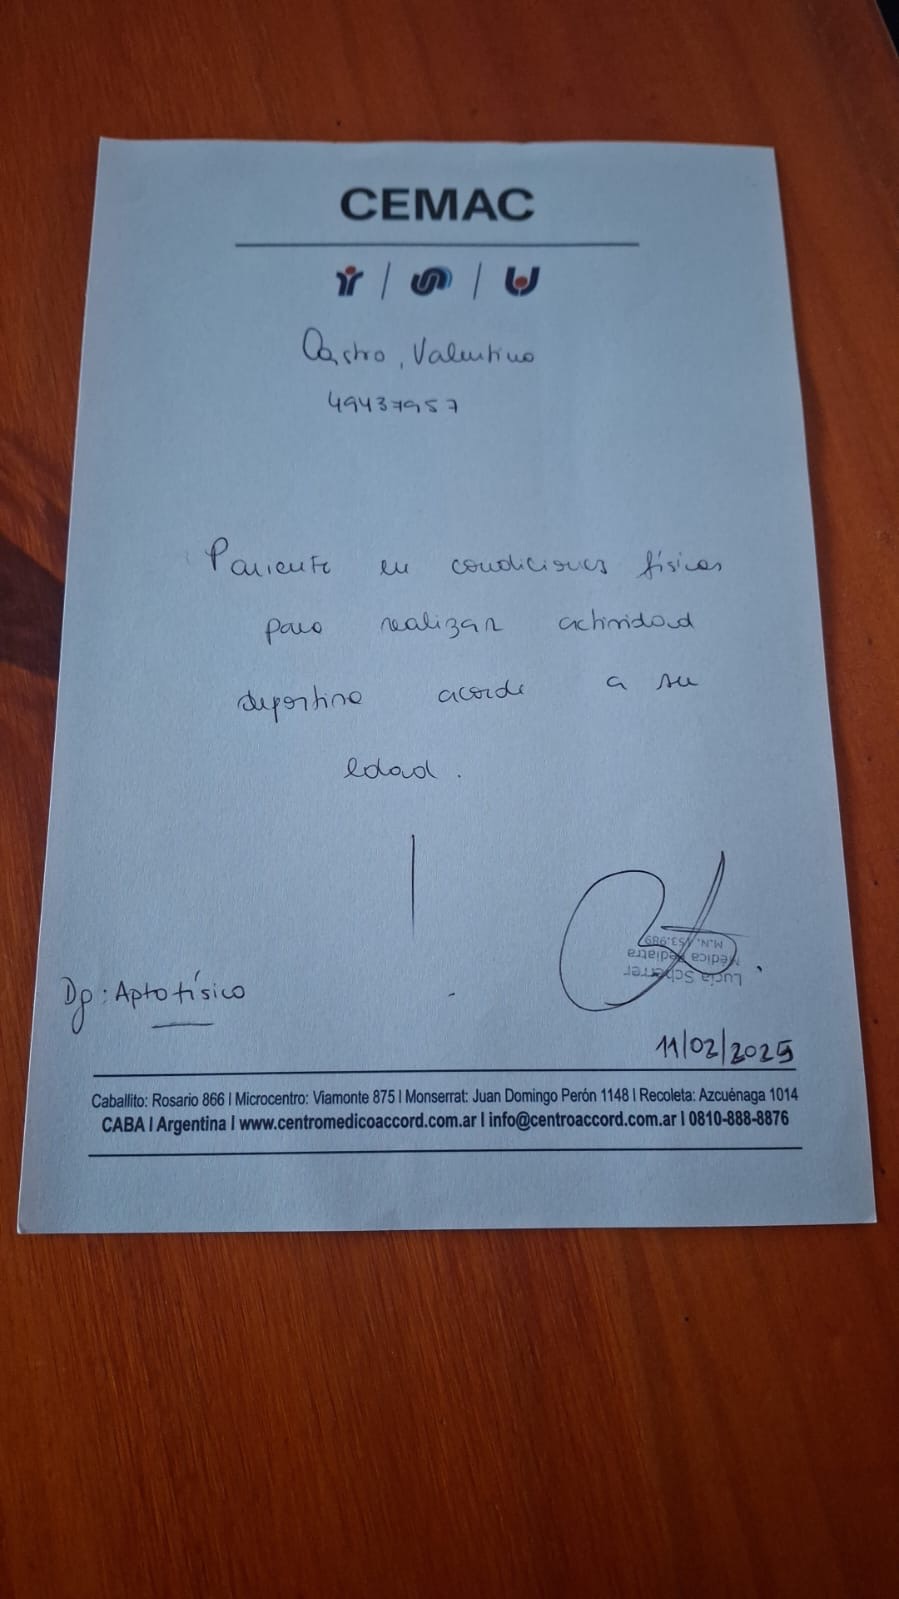 CEMAC
Castro, Valentino
49437957
Paciente en condiciones físicas
para realizar actividad
deportiva acorde a su
edad.
Lucia Scherrer
Médica Pediatra
M.N. 153.989
Dg: Apto físico
11/02/2025
Caballito: Rosario 866 | Microcentro: Viamonte 875 | Monserrat: Juan Domingo Perón 1148 | Recoleta: Azcuénaga 1014
CABA | Argentina | www.centromedicoaccord.com.ar | info@centroaccord.com.ar | 0810-888-8876